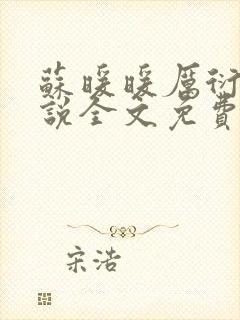 蘇暖暖厲衍
說全文免費
宋浩